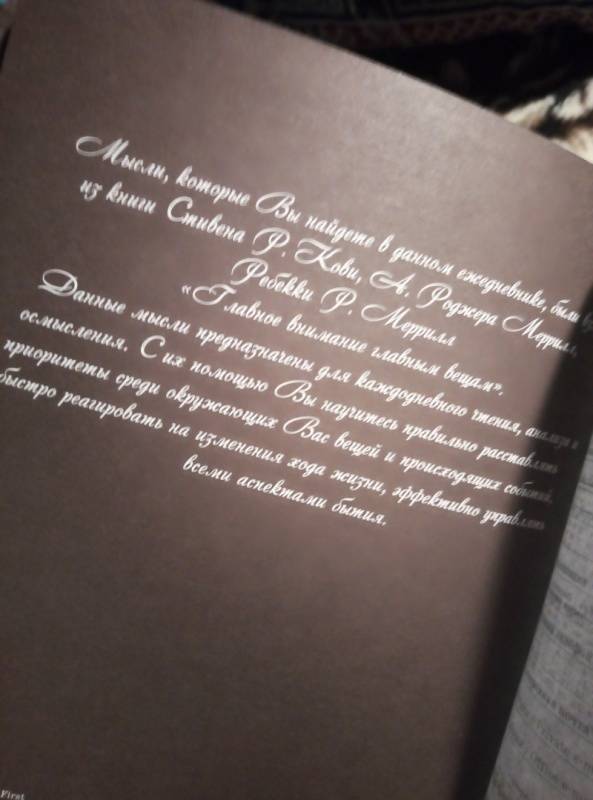 Мысли, которые Вы найдете в данном ежедневнике, были
из книги Стивена Р. Кови, А. Роджера Меррилл,
Ребекки Р. Меррилл
«Главное внимание главным вещам».
Данные мысли предназначены для каждодневного чтения, анализа и
осмысления. С их помощью Вы научитесь правильно расставлять
приоритеты среди окружающих Вас вещей и происходящих событий,
быстро реагировать на изменения хода жизни, эффективно управлять
всеми аспектами бытия.
First